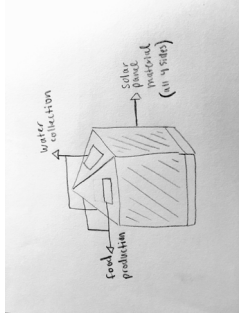 water
collection
solar
panel
material
(all 4 sides)
food
production